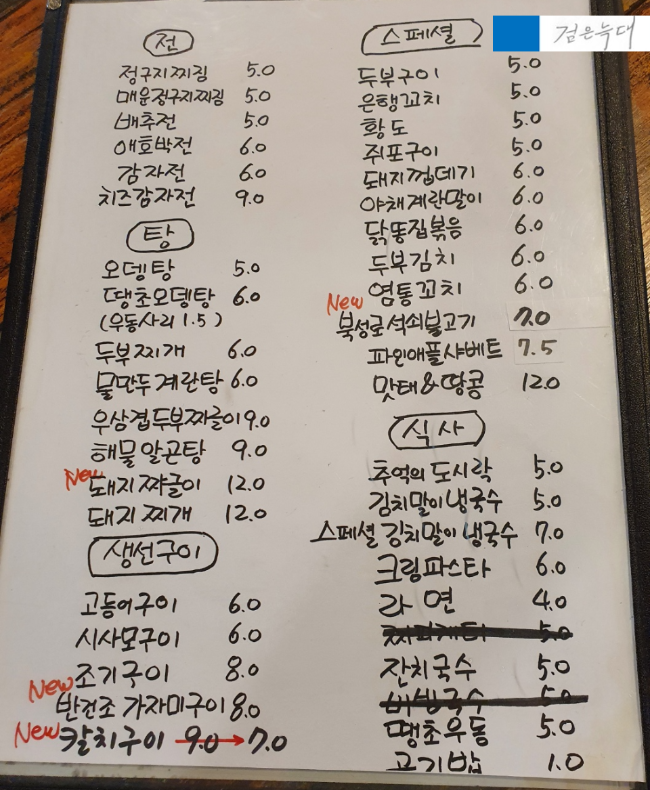 검은늑대
전
정구지찌짐 5.0
매운정구지찌짐 5.0
배추전 5.0
애호박전 6.0
감자전 6.0
치즈감자전 9.0
탕
오뎅탕 5.0
땡초오뎅탕 6.0
(우동사리 1.5)
두부찌개 6.0
물만두계란탕 6.0
우삼겹두부짜글이 9.0
해물알곤탕 9.0
New
돼지짜글이 12.0
돼지찌개 12.0
생선구이
고등어구이 6.0
시사모구이 6.0
조기구이 8.0
New
반건조 가자미구이 8.0
New 칼치구이 9.0→7.0
스페셜
두부구이 5.0
은행꼬치 5.0
황도 5.0
쥐포구이 5.0
돼지껍데기 6.0
야채계란말이 6.0
닭똥집볶음 6.0
두부김치 6.0
염통꼬치 6.0
New
북성로석쇠불고기 7.0
파인애플샤베트 7.5
맛태&땅콩 12.0
식사
추억의 도시락 5.0
김치말이냉국수 5.0
스페셜 김치말이 냉국수 7.0
크림파스타 6.0
라면 4.0
5.0
잔치국수 5.0
비빔국수 5.0
땡초우동 5.0
고기밥 1.0